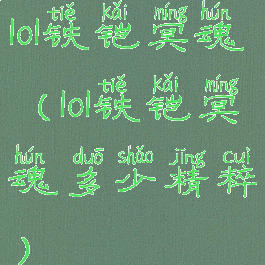 tiě kǎi míng hún
lol铁铠冥魂
tiě kǎi míng
(lol铁铠冥
hún duō shǎo jīng cuì
魂多少精粹
)